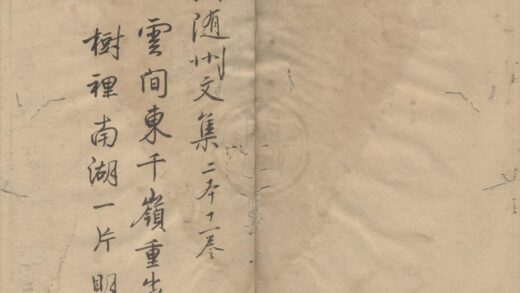 随州文集二本十一卷
雲间東千嶺重出
樹裡南湖一片明